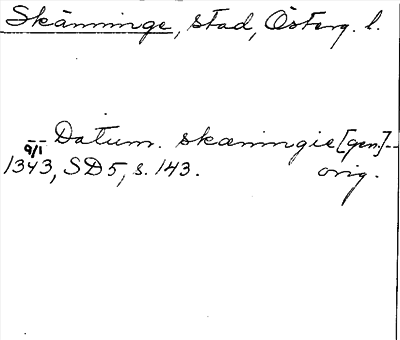 Skänninge, stad, Österg. l.
-- Datum. skæningie [gen.] --
9/1
1343, SD 5, s. 143. orig.